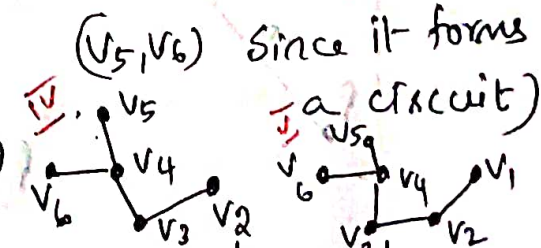 (V5,V6) Since it forms
a circuit)
IV. V5
V4
V6
V3
V2
V. V5
V6
V4
V1
V2
V3